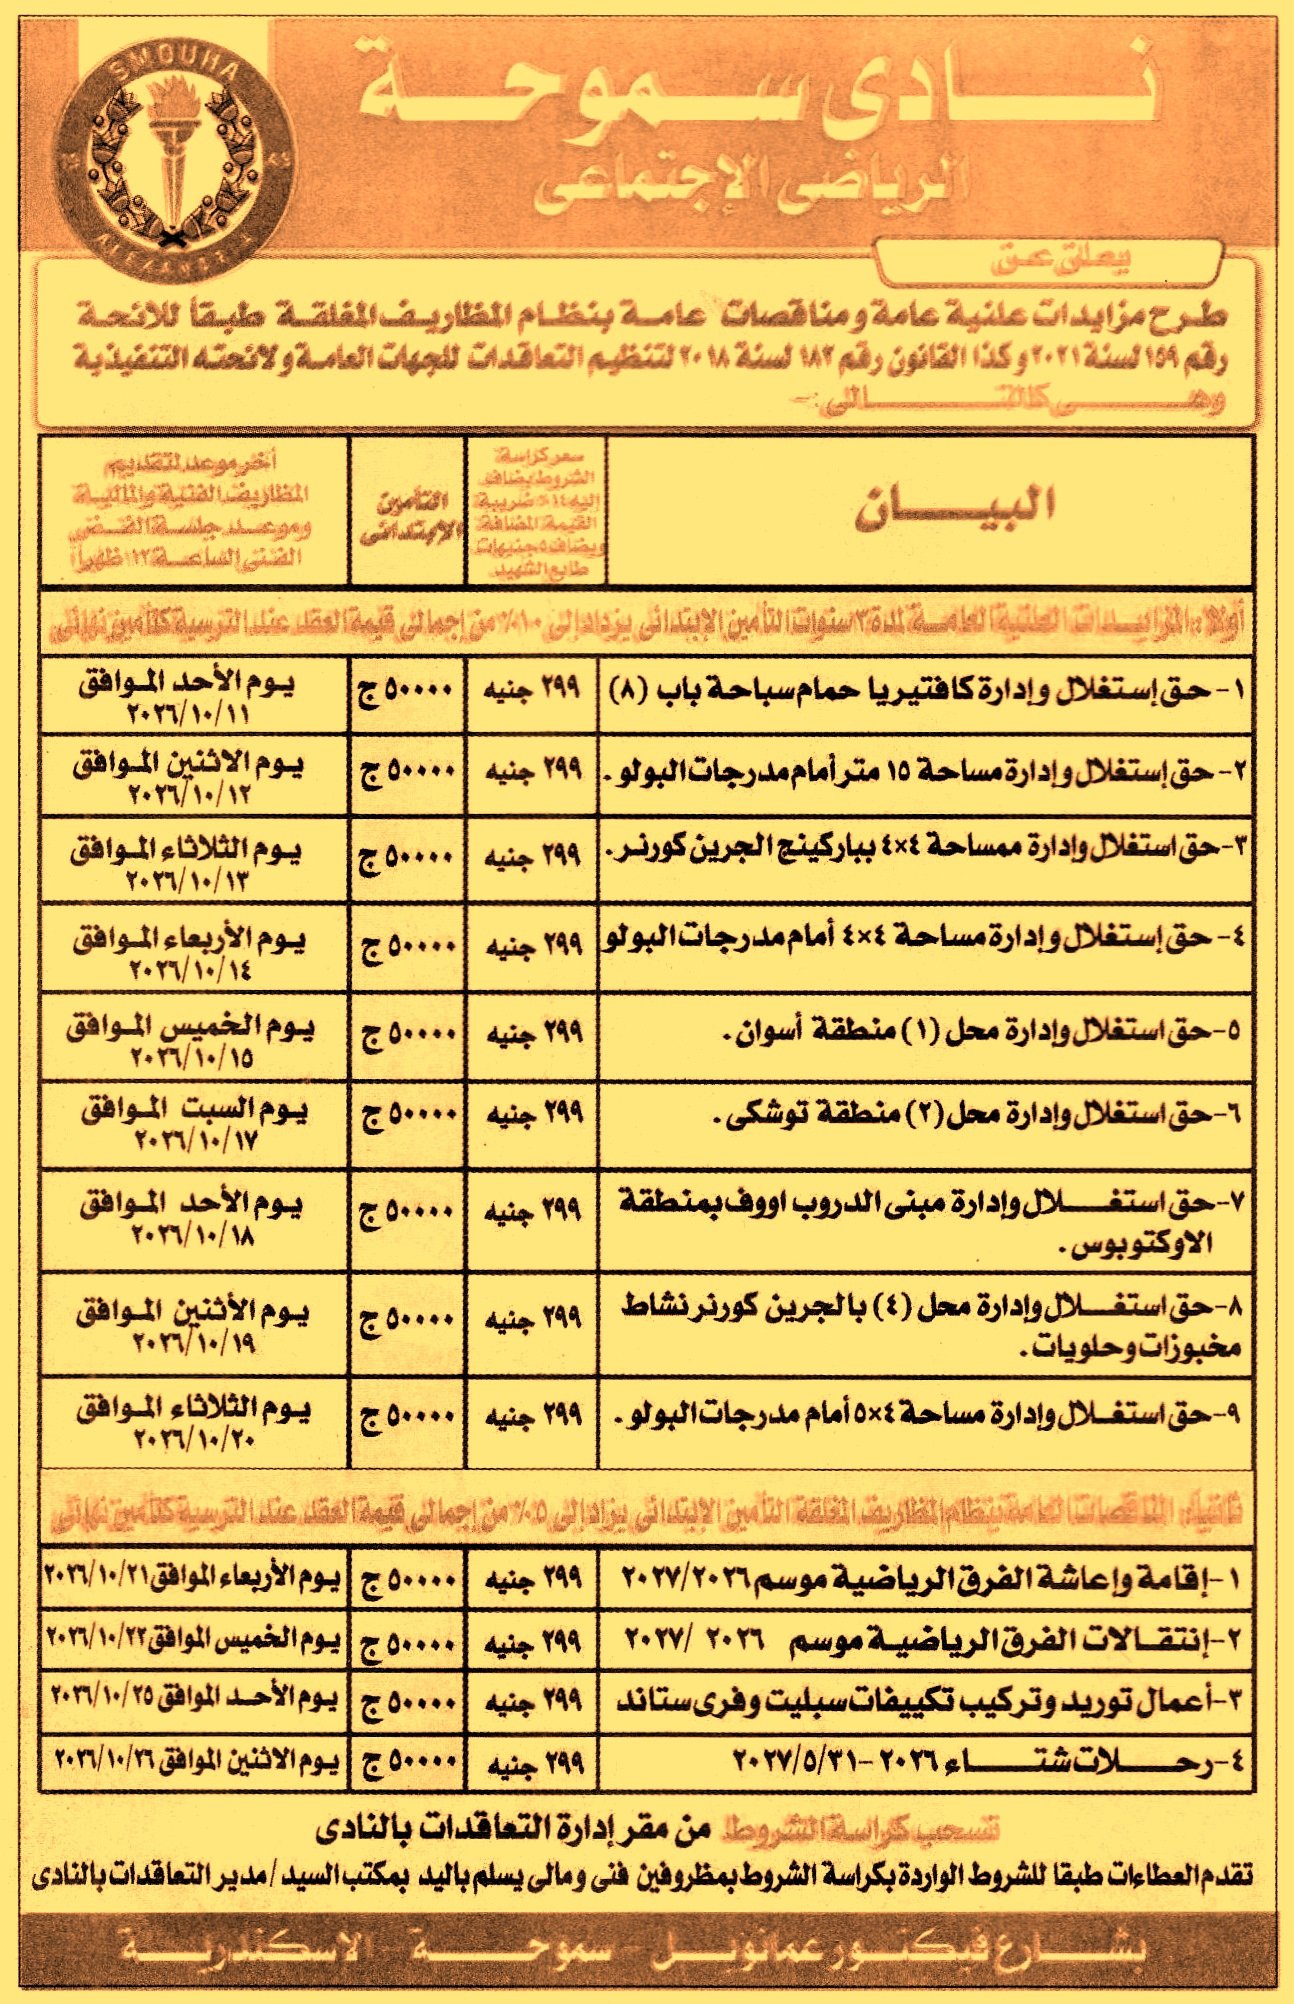 SMOUHA
نادى سموحة
الرياضى الإجتماعى
يعلن عن
طرح مزايدات علنية عامة ومناقصات عامة بنظام المظاريف المغلقة طبقاً للائحة
رقم ١٥٩ لسنة ٢٠٢١ وكذا القانون رقم ١٨٢ لسنة ٢٠١٨ لتنظيم التعاقدات للجهات العامة ولائحته التنفيذية
وهـى كالتـالى :-
البيـــان
سعر كراسة
الشروط يضاف
إليه ١٤٪ ضريبة
القيمة المضافة
ويضاف ٥ جنيهات
طابع الشهيد
التأمين
الابتدائى
أخر موعد لتقديم
المظاريف الفنية والمالية
وموعد جلسة الفض
الفنى الساعة ١٢ ظهراً
أولاً : المزايدات العلنية العامة لمدة ٣ سنوات التأمين الإبتدائى يزداد إلى ١٠٪ من إجمالى قيمة العقد عند الترسية كتأمين نهائى
١- حق إستغلال وإدارة كافتيريا حمام سباحة باب (٨) ٢٩٩ جنيه ٥٠٠٠٠ ج يوم الأحد الموافق
٢٠٢٦/١٠/١١
٢- حق إستغلال وإدارة مساحة ١٥ متر أمام مدرجات البولو . ٢٩٩ جنيه ٥٠٠٠٠ ج يوم الاثنين الموافق
٢٠٢٦/١٠/١٢
٣- حق استغلال وإدارة ممساحة ٤×٤ بباركينج الجرين كورنر . ٢٩٩ جنيه ٥٠٠٠٠ ج يوم الثلاثاء الموافق
٢٠٢٦/١٠/١٣
٤- حق إستغلال وإدارة مساحة ٤×٤ أمام مدرجات البولو ٢٩٩ جنيه ٥٠٠٠٠ ج يوم الأربعاء الموافق
٢٠٢٦/١٠/١٤
٥- حق استغلال وإدارة محل (١) منطقة أسوان . ٢٩٩ جنيه ٥٠٠٠٠ ج يوم الخميس الموافق
٢٠٢٦/١٠/١٥
٦- حق استغلال وإدارة محل (٢) منطقة توشكى . ٢٩٩ جنيه ٥٠٠٠٠ ج يوم السبت الموافق
٢٠٢٦/١٠/١٧
٧- حق استغـلال وإدارة مبنى الدروب اووف بمنطقة ٢٩٩ جنيه ٥٠٠٠٠ ج يوم الأحد الموافق
الاوكتوبوس . ٢٠٢٦/١٠/١٨
٨- حق استغـلال وإدارة محل (٤) بالجرين كورنر نشاط ٢٩٩ جنيه ٥٠٠٠٠ ج يوم الأثنين الموافق
مخبوزات وحلويات . ٢٠٢٦/١٠/١٩
٩- حق استغـلال وإدارة مساحة ٤×٥ أمام مدرجات البولو . ٢٩٩ جنيه ٥٠٠٠٠ ج يوم الثلاثاء الموافق
٢٠٢٦/١٠/٢٠
ثانياً : المناقصات العامة بنظام المظاريف المغلقة التأمين الإبتدائى يزداد إلى ٥٪ من إجمالى قيمة العقد عند الترسية كتأمين نهائى
١- إقامة وإعاشة الفرق الرياضية موسم ٢٠٢٧/٢٠٢٦ ٢٩٩ جنيه ٥٠٠٠٠ ج يوم الأربعاء الموافق ٢٠٢٦/١٠/٢١
٢- إنتقـالات الفرق الرياضية موسم ٢٠٢٦ /٢٠٢٧ ٢٩٩ جنيه ٥٠٠٠٠ ج يوم الخميس الموافق ٢٠٢٦/١٠/٢٢
٣- أعمال توريد وتركيب تكييفات سبليت وفرى ستاند ٢٩٩ جنيه ٥٠٠٠٠ ج يوم الأحـد الموافق ٢٠٢٦/١٠/٢٥
٤- رحـــلات شتـــاء ٢٠٢٦ - ٢٠٢٧/٥/٣١ ٢٩٩ جنيه ٥٠٠٠٠ ج يوم الاثنين الموافق ٢٠٢٦/١٠/٢٦
تسحب كراسة الشروط من مقر إدارة التعاقدات بالنادى
تقدم العطاءات طبقا للشروط الواردة بكراسة الشروط بمظروفين فنى ومالى يسلم باليد بمكتب السيد / مدير التعاقدات بالنادى
بشـارع فيكتـور عمانويـل - سموحـة - الاسكندريـة